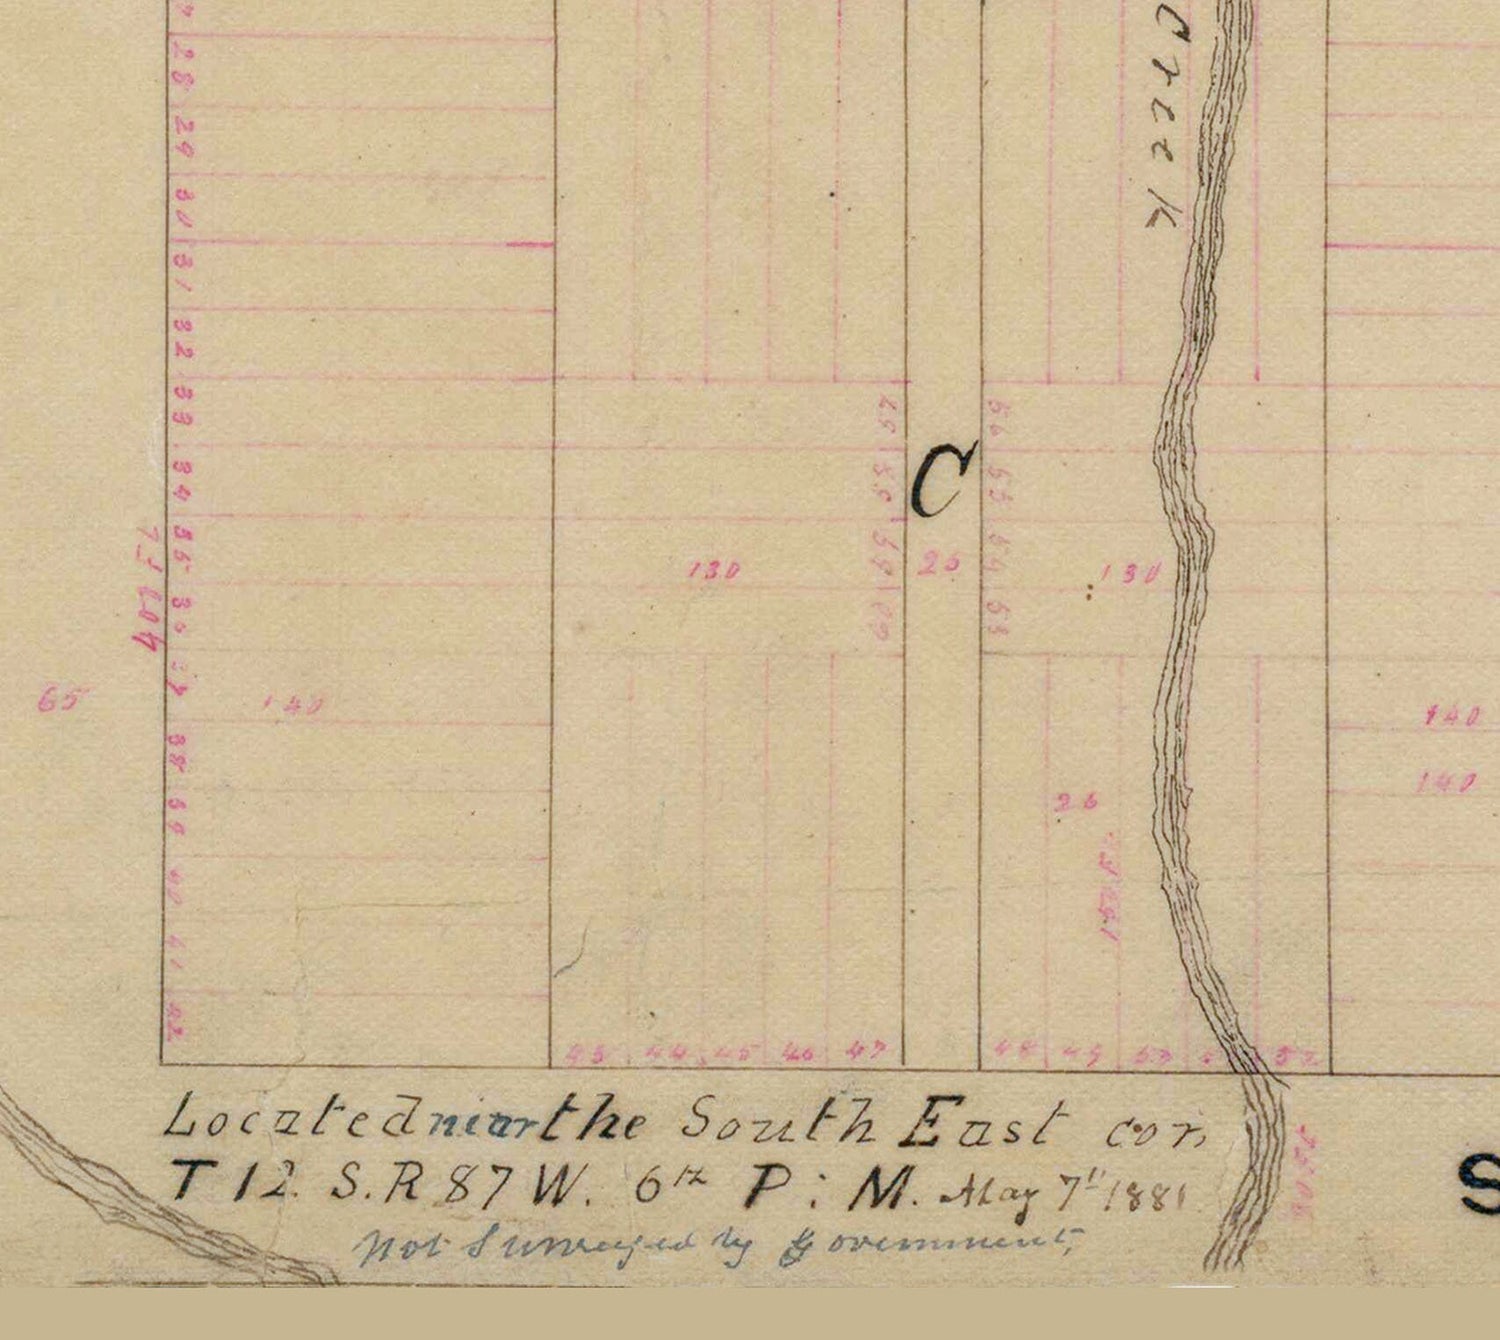 Creek
28
29
30
31
32
33
34
35
36
37
38
39
40
41
42
C
130
26
130
65
140
140
140
26
56
55
54
53
43 44 45 46 47
48 49 52
Located near the South East cor,
T 12. S. R 87 W. 6th P: M. May 7" 1881
Not Surveyed by Government,
S